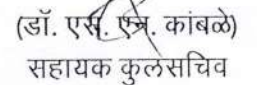 (डॉ. एस. एन. कांबळे)
सहायक कुलसचिव